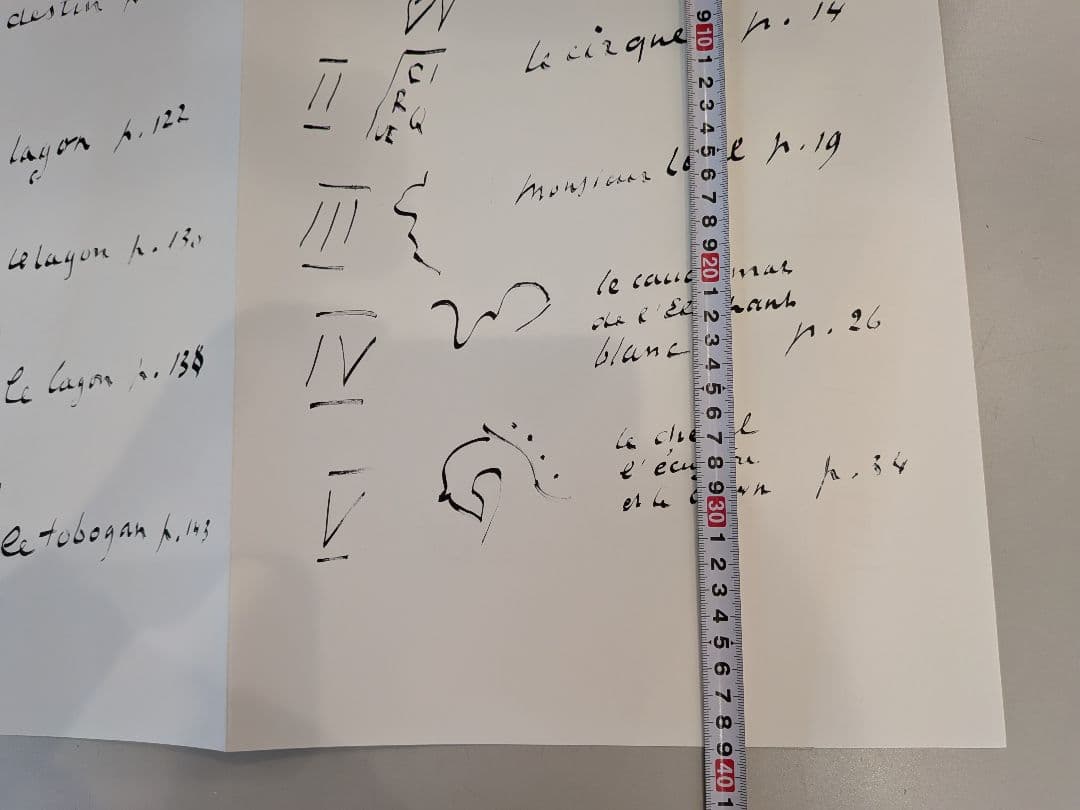 destin
lagon p. 122
le lagon p. 130
le lagon p. 138
le tobogan p. 143
II
CI
R Q
UE
le cirque p. 14
III
monsieur p. 19
IV
de l'
blanc p. 26
V
le
l'
et le p. 34
9 10 1 2 3 4 5 6 7 8 9 20 1 2 3 4 5 6 7 8 9 30 1 2 3 4 5 6 7 8 9 40 1